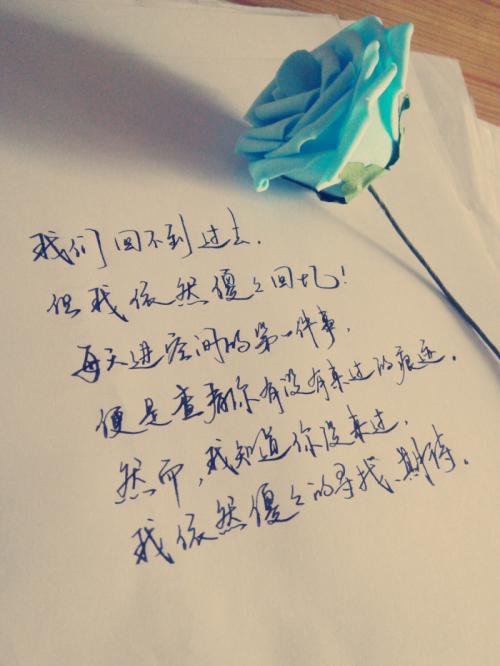 我们回不到过去，
但我依然傻々回忆！
每天进空间的第一件事，
便是查看你有没有来过的痕迹。
然而，我知道你没来过，
我依然傻々的寻找、期待。